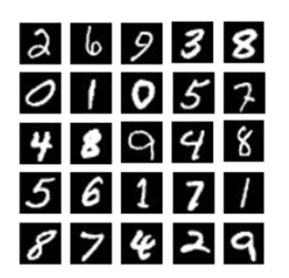 2 6 9 3 8
0 1 0 5 7
4 8 9 4 8
5 6 1 7 1
8 7 4 2 9